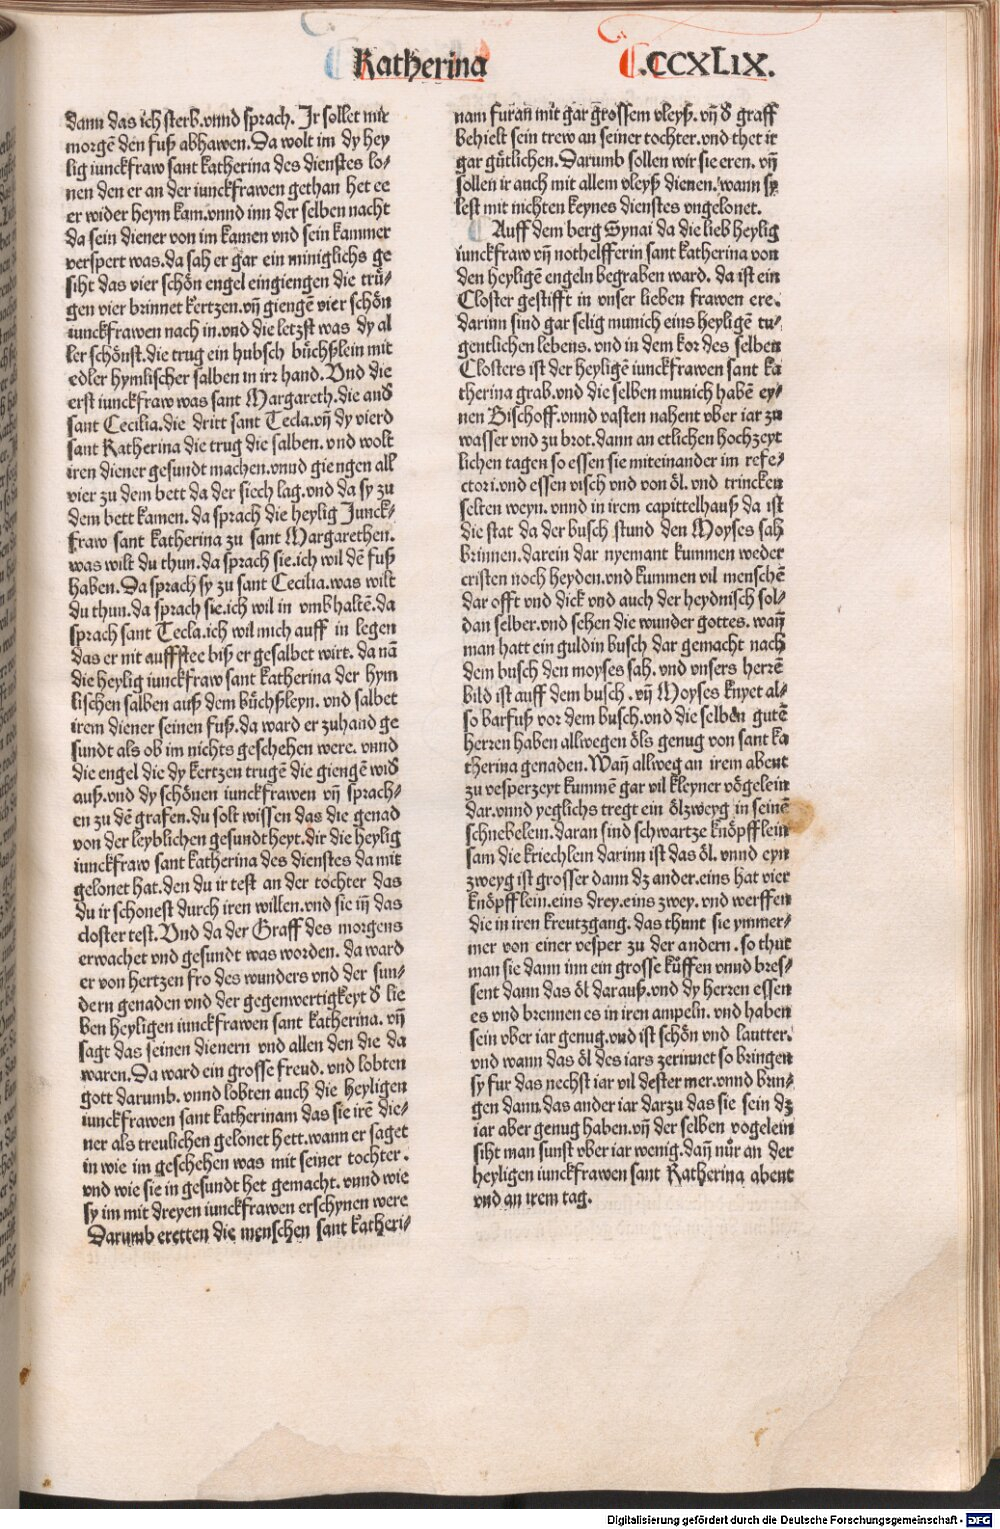 Katherina
.CCXLIX.
dann das ich sterb.vnnd sprach. Jr sollet mir
morgē den fuß abhawen.Da wolt im dy hey
lig iunckfraw sant katherina des dienstes lo⸗
nen den er an der iunckfrawen gethan het ee
er wider heym kam.vnnd inn der selben nacht
da sein diener von im kamen vnd sein kammer
verspert was.da sah er gar ein miniglichs ge
siht das vier schön engel eingiengen die trů⸗
gen vier brinnet kertzen.vn̄ giengē vier schön
iunckfrawen nach in.vnd die letzst was dy al
ler schönst.die trug ein hubsch büchßlein mit
edler hymlischer salben in irr hand.Vnd die
erst iunckfraw was sant Margareth.die and
sant Cecilia.die dritt sant Tecla.vn̄ dy vierd
sant Katherina die trug die salben. vnd wolt
iren diener gesundt machen.vnnd giengen all
vier zu dem bett da der siech lag.vnd da sy zu
dem bett kamen. da sprach die heylig Junck⸗
fraw sant katherina zu sant Margarethen.
was wilt du thun.da sprach sie.ich wil dē fuß
haben.Da sprach sy zu sant Cecilia.was wilt
du thun.da sprach sie.ich wil in vmbhaltē.da
sprach sant Tecla.ich wil mich auff in legen
das er nit auffstee biß er gesalbet wirt. da nā
die heylig iunckfraw sant katherina der hym
lischen salben auß dem büchßleyn. vnd salbet
irem diener seinen fuß.da ward er zuhand ge
sundt als ob im nichts geschehen were. vnnd
die engel die dy kertzen trugē die giengē wid
auß.vnd dy schönen iunckfrawen vn̄ sprach⸗
en zu dē grafen.du solt wissen das die genad
von der leyblichen gesundtheyt.dir die heylig
iunckfraw sant katherina des dienstes da mit
gelonet hat.den du ir test an der tochter das
du ir schonest durch iren willen.vnd sie in̄ das
closter test.Vnd da der Graff des morgens
erwachet vnd gesundt was worden. da ward
er von hertzen fro des wunders vnd der sun⸗
dern genaden vnd der gegenwertigkeyt d lie
ben heyligen iunckfrawen sant katherina. vn̄
sagt das seinen dienern vnd allen den die da
waren.Da ward ein grosse freud. vnd lobten
gott darumb. vnnd lobten auch die heyligen
iunckfrawen sant katherinam das sie irē die⸗
ner als treulichen gelonet hett.wann er saget
in wie im geschehen was mit seiner tochter.
vnd wie sie in gesundt het gemacht. vnnd wie
sy im mit dreyen iunckfrawen erschynen were
Darumb eretten die menschen sant katheri⸗
nam furan̄ mit gar grossem vleyß. vn̄ d graff
behielt sein trew an seiner tochter.vnd thet ir
gar gůtlichen.Darumb sollen wir sie eren. vn̄
sollen ir auch mit allem vleyß dienen.wann sy
lest mit nichten keynes dienstes vngelonet.
Auff dem berg Synai da die lieb heylig
iunckfraw vn̄ nothelfferin sant katherina von
den heyligē engeln begraben ward. da ist ein
Closter gestifft in vnser lieben frawen ere.
darinn sind gar selig munich eins heyligē tu⸗
gentlichen lebens. vnd in dem kor des selben
Closters ist der heyligē iunckfrawen sant ka
therina grab.vnd die selben munich habē ey⸗
nen Bischoff.vnnd vasten nahent vber iar zu
wasser vnd zu brot.dann an etlichen hochzeyt
lichen tagen so essen sie miteinander im refe⸗
ctori.vnd essen visch vnd von öl. vnd trincken
selten weyn. vnnd in irem capittelhauß da ist
die stat da der busch stund den Moyses sah
brinnen.darein dar nyemant kummen weder
cristen noch heyden.vnd kummen vil menschē
dar offt vnd dick vnd auch der heydnisch sol⸗
dan selber.vnd sehen die wunder gottes. wan̄
man hatt ein guldin busch dar gemacht nach
dem busch den moyses sah. vnd vnsers herrē
bild ist auff dem busch . vn̄ Moyses knyet al⸗
so barfuß vor dem busch.vnd die selben gutē
herren haben allwegen öls genug von sant ka
therina genaden.Wan̄ allweg an irem abent
zu vesperzeyt kummē gar vil kleyner vögelein
dar.vnnd yeglichs tregt ein ölzweyg in seinē
schnebelein.daran sind schwartze knöpfflein
sam die kriechlein darinn ist das öl. vnnd eyn
zweyg ist grosser dann dz ander.eins hat vier
knöpfflein.eins drey.eins zwey. vnd werffen
die in iren kreutzgang. das thunt sie ymmer⸗
mer von einer vesper zu der andern . so thut
man sie dann inn ein grosse kůffen vnnd bres⸗
sent dann das öl darauß.vnd dy herren essen
es vnd brennen es in iren ampeln. vnd haben
sein vber iar genug.vnd ist schön vnd lautter.
vnd wann das öl des iars zerinnet so bringen
sy fur das nechst iar vil dester mer.vnnd brin⸗
gen dann.das ander iar darzu das sie sein dz
iar aber genug haben.vn̄ der selben vogelein
siht man sunst vber iar wenig.dan̄ nůr an der
heyligen iunckfrawen sant Katherina abent
vnd an irem tag.
Digitalisierung gefördert durch die Deutsche Forschungsgemeinschaft - DFG